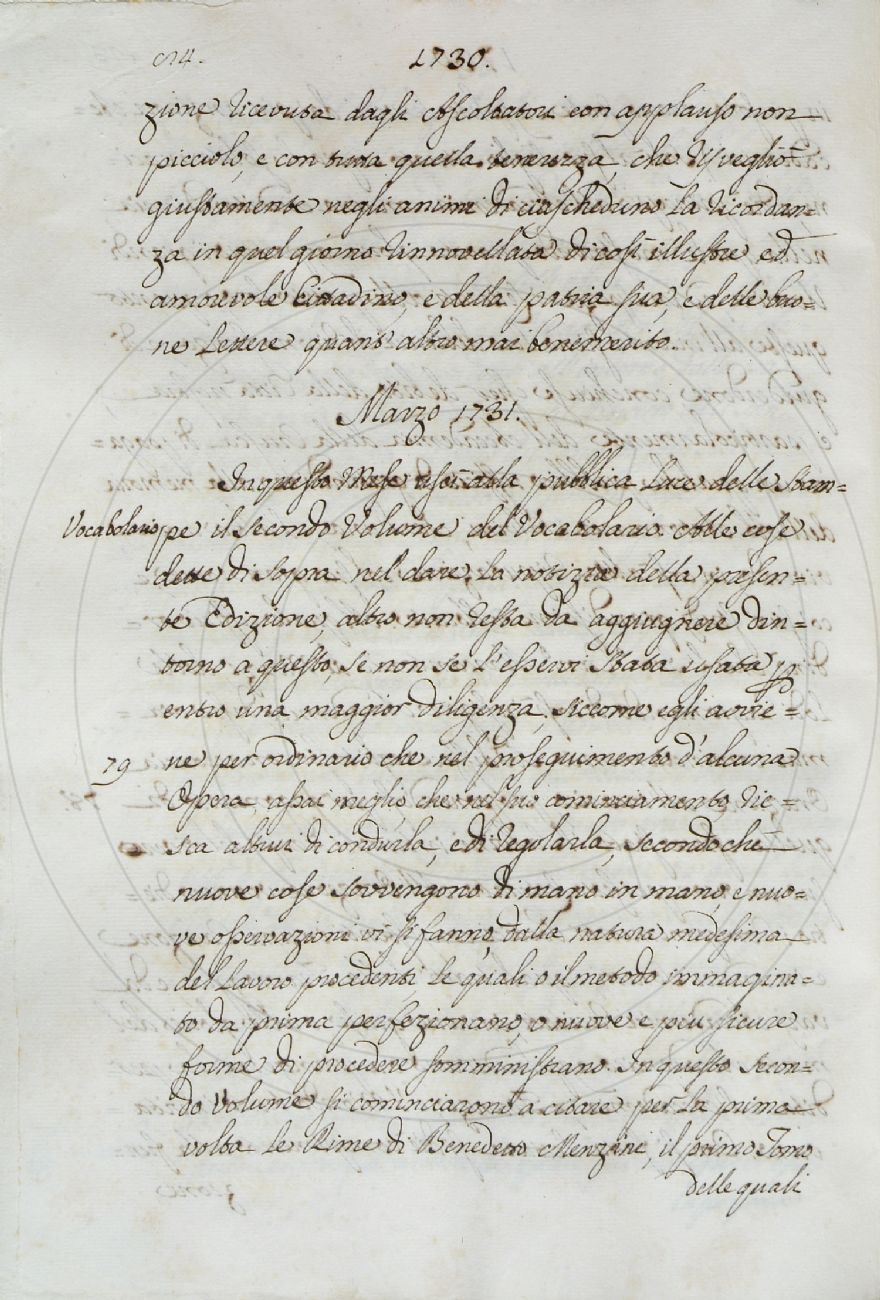 1730.
zione ricevuta dagli Ascoltatori con applauso non
picciolo, e con tutta quella tenerezza, che risvegliò
giustamente negli animi di ciascheduno la ricordan=
za in quel giorno rinnovellata di così illustre ed
amorevole Cittadino, e della patria sua, e delle buo=
ne Lettere quant' altro mai benemerito.
Marzo 1731.
In questo Mese uscì alla pubblica Luce delle Stam=
Vocabolario pe il secondo Volume del Vocabolario. Alle cose
dette di sopra nel dare la notizia della presen=
te Edizione, altro non resta da aggiugnere din=
torno a questo, se non se l'esservi stata usata p
entro una maggior diligenza, siccome egli avvie=
79 ne per ordinario che nel proseguimento d'alcuna
Opera assai meglio, che nel suo cominciamento, rie=
sca altrui di condurla, e di regolarla, secondochè
nuove cose sovvengono di mano in mano, e nuo=
ve osservazioni vi si fanno, dalla natura medesima
del Lavoro procedenti le quali o il metodo immagina=
to da prima perfezionano, o nuove e più sicure
forme di procedere somministrano. In questo secon=
do Volume si cominciarono a citare per la prima
volta le Rime di Benedetto Menzini, il primo Tomo
delle quali